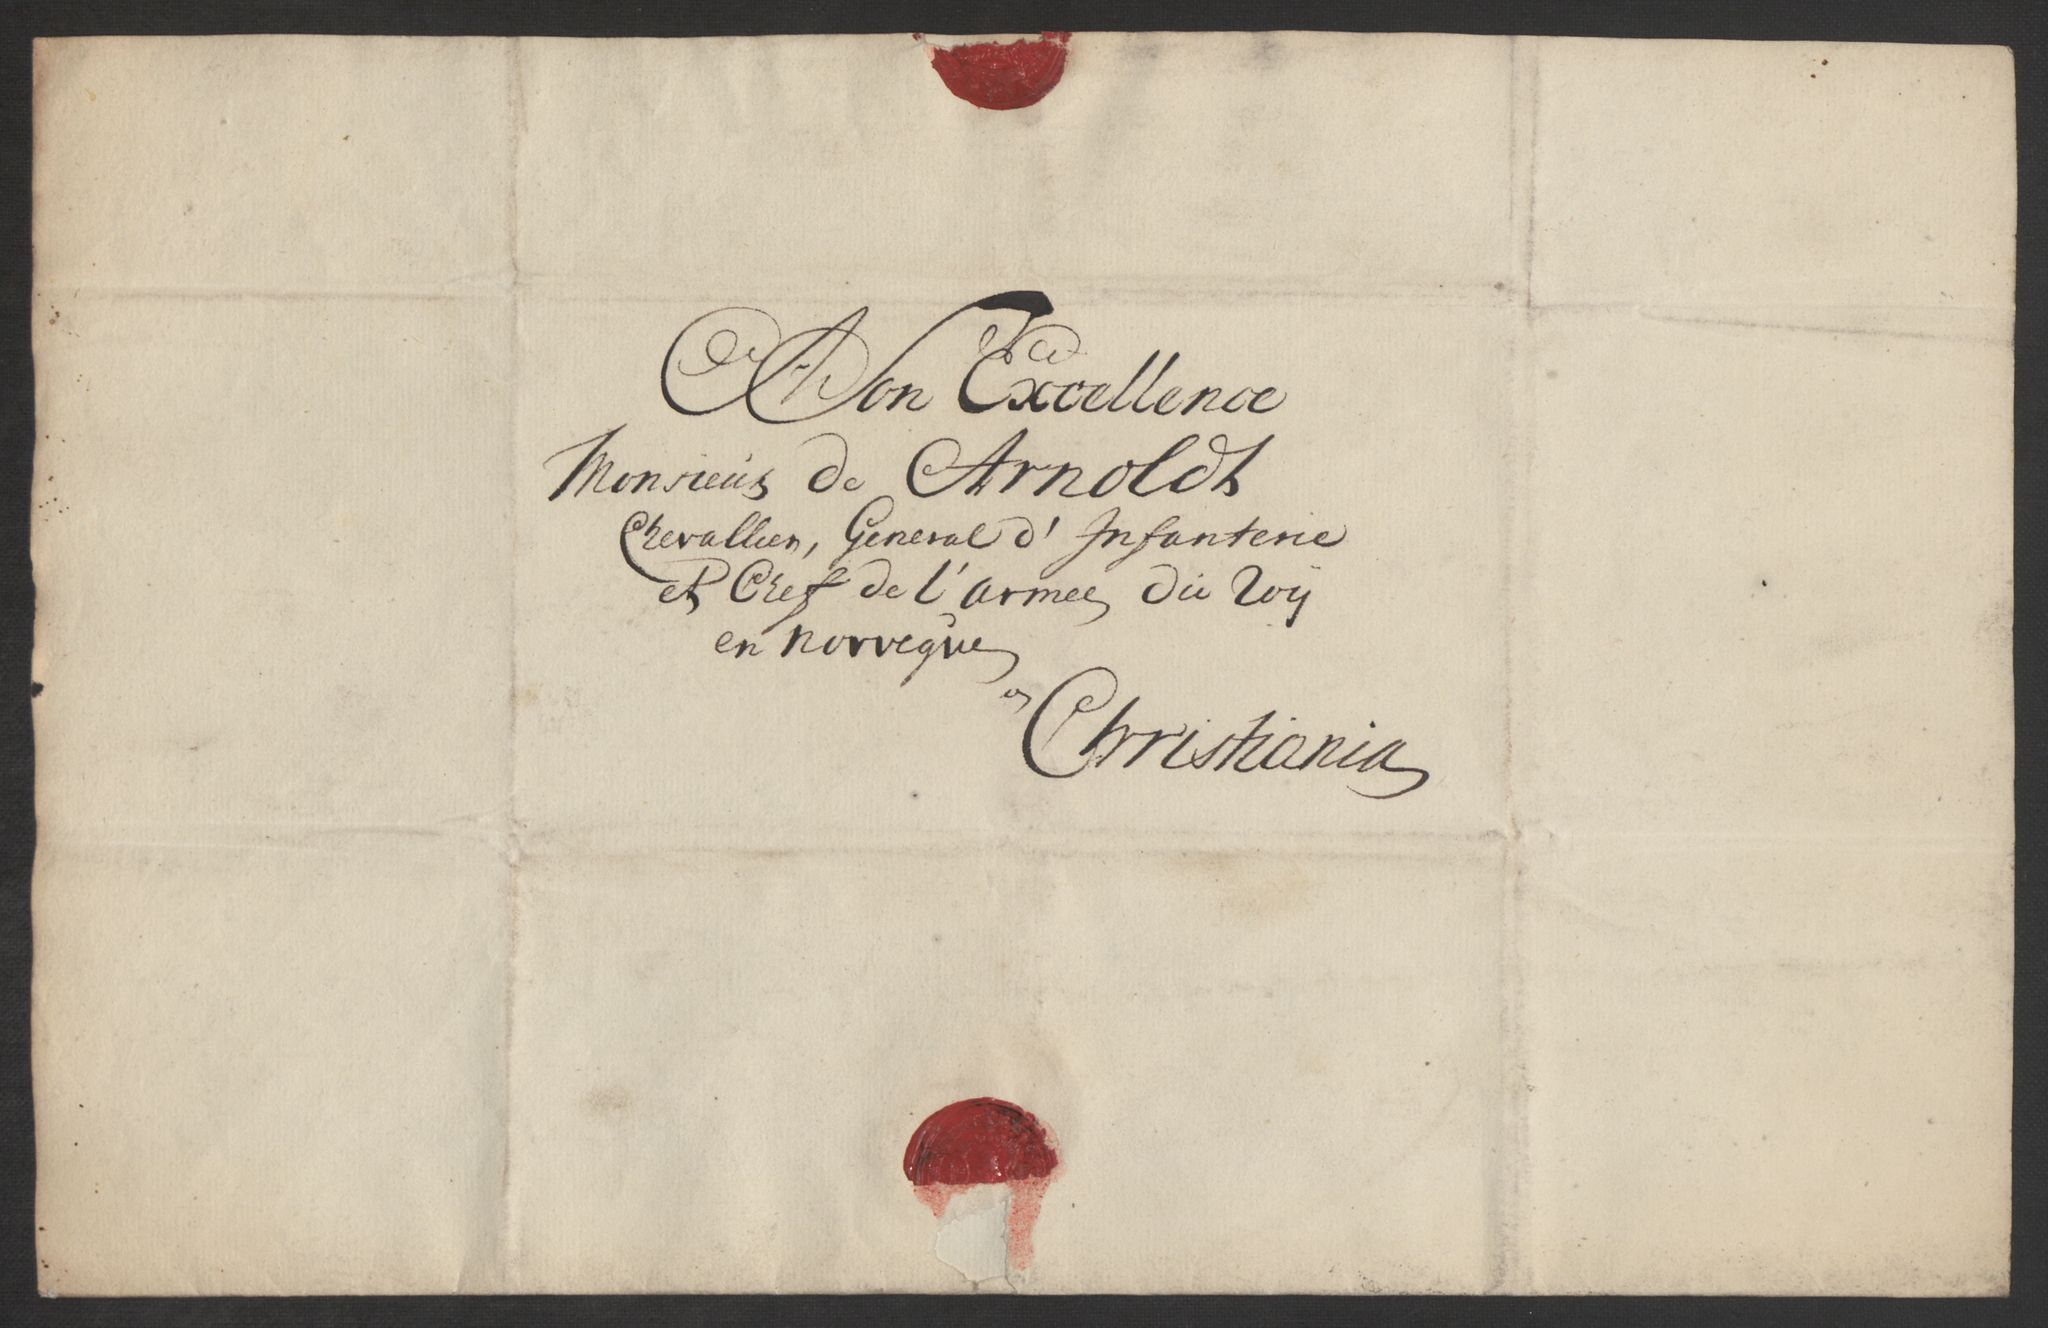 A Son Excellence
Monsieur de Arnoldt
Chevallier, General d' Infanterie
et Chef de l'armee du Roÿ
en Norvegue
a Christiania